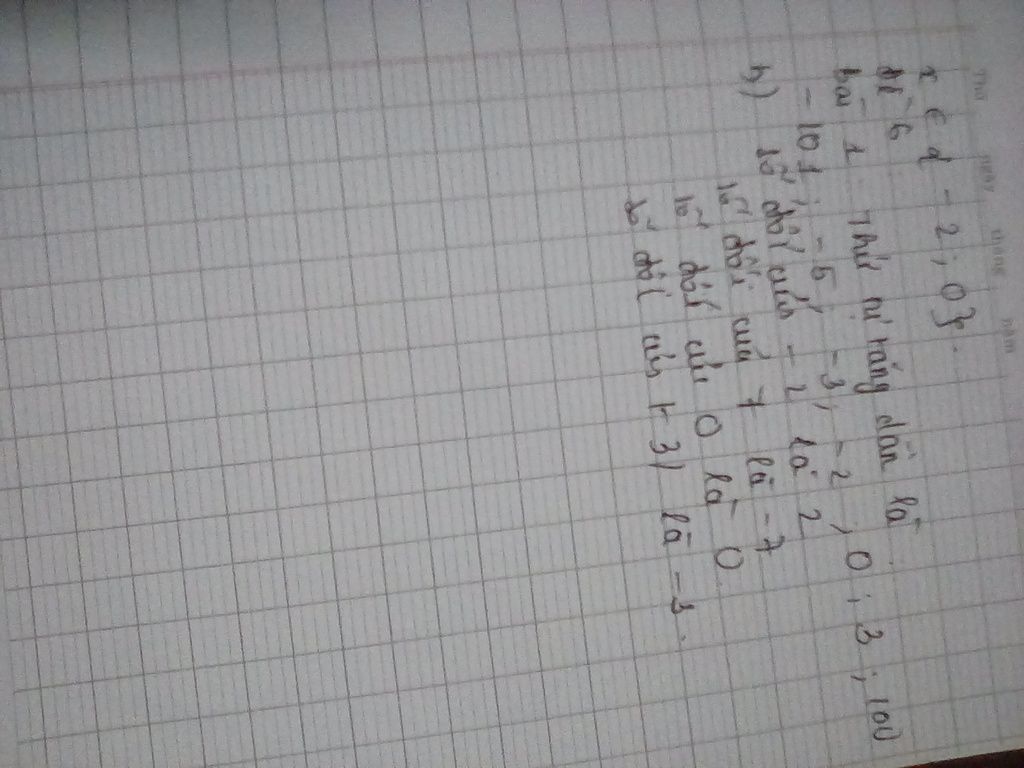 Thứ ngày tháng năm
x ∈ { - 2 ; 0 }.
N - 6
bài 1 Thứ tự tăng dần là
- 101 ; - 5 ; - 3 ; - 2 ; 0 ; 3 ; 100
b) số đối của - 2 là 2
số đối của 7 là - 7
số đối của 0 là 0
số đối của |- 3| là - 3.